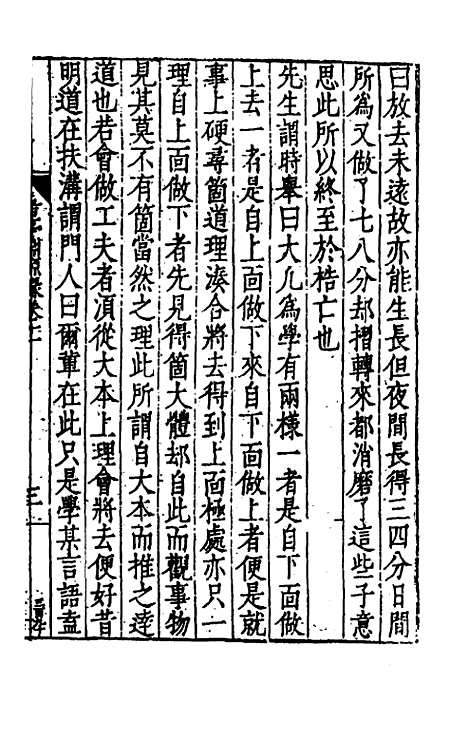 曰放去未遠故亦能生長但夜間長得三四分日間
所為又做了七八分却摺轉來都消磨了這些子意
思此所以終至於梏亡也
先生謂時舉曰大凡為學有兩様一者是自下面做
上去一者是自上面做下來自下面做上者便是就
事上硬尋箇道理湊合將去得到上面極處亦只一
理自上面做下者先見得箇大體却自此而觀事物
見其莫不有箇當然之理此所謂自大本而推之達
道也若會做工夫者湏從大本上理會將去便好昔
明道在扶溝謂門人曰爾輩在此只是學某言語盍
三